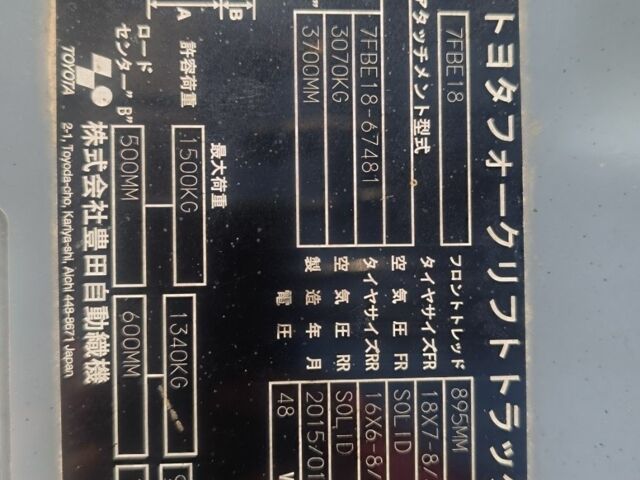 トヨタフォークリフトトラック
7FBE18
アタッチメント型式
7FBE18-67481
3070KG
3700MM
フロントトレッド 895MM
タイヤサイズFR 18X7-8/
空気圧 FR SOLID
タイヤサイズRR 16X6-8/
空気圧 RR SOLID
製造年月 2015/01
電圧 48 V
B
A
最大荷重
許容荷重 1500KG 1340KG
ロード
センター"B" 500MM 600MM
TOYOTA
株式会社豊田自動織機
2-1, Toyoda-cho, Kariya-shi, Aichi 448-8671 Japan